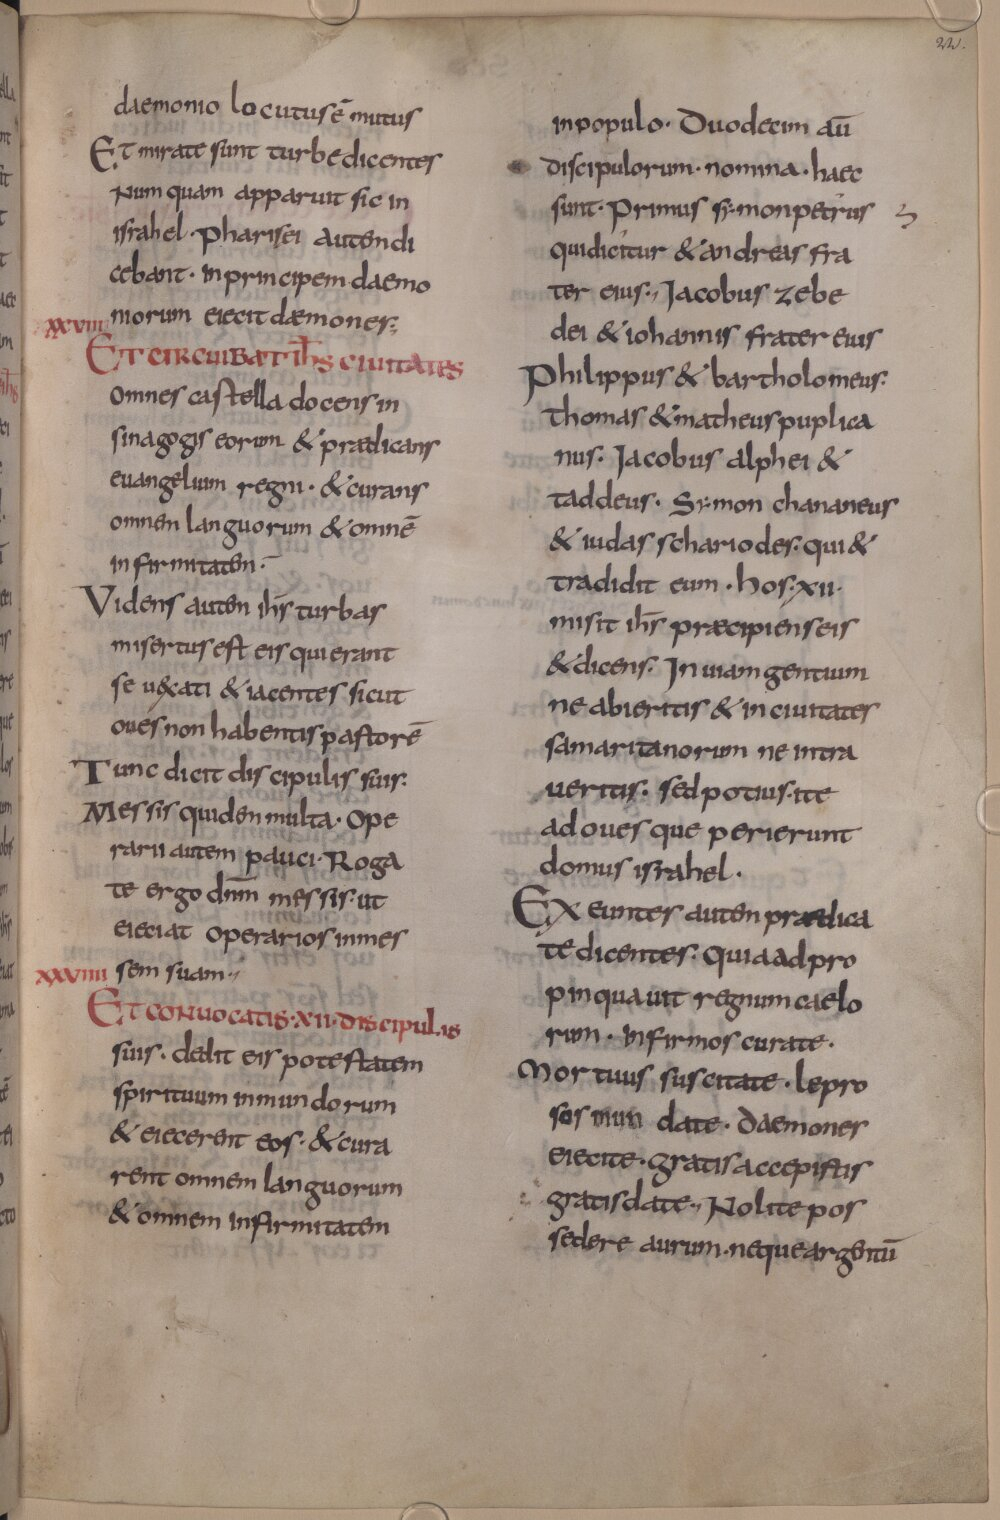 22.
daemonio locutus ē mutus
Et mirate sunt turbe dicentes
Numquam apparuit sic in
israhel · Pharisei autem di
cebant · in principem daemo
niorum eiecit dæmones ;
xxxviii
Et circuibat ihs ciuitates
omnes castella docens in
sinagogis eorum & prædicans
euangelium regni · & curans
omnem languorum & omnē
infirmitatem ·
Videns autem ihs turbas
misertus est eis qui erant
se uexati & iacentes sicut
oues non habentis pastorē
Tunc dicit discipulis suis :
Messis quidem multa · Ope
rarii autem pauci · Roga
te ergo dnm messis · ut
eieciat operarios in mes
sem suam ·,
xxxviiii
Et conuocatis · xii · discipulis
suis · dedit eis potestatem
spirituum inmundorum
& eiecerent eos · & cura
rent omnem languorum
& omnem infirmitatem
in populo · Duodecim aū
discipulorum · nomina · haec
sunt · Primus symon petrus
qui dicitur & andreas fra
ter eius ·, Jacobus zebe
dei & iohannis frater eius
Philippus & bartholomeus :
thomas & matheus puplica
nus · Jacobus alphei &
taddeus · Symon chananeus
& iudas schariodes · qui &
tradidit eum · hos · xii ·
misit ihs præcipiens eis
& dicens · In uiam gentium
ne abieritis & in ciuitates
samaritanorum ne intra
ueritis : sed potius · ite
ad oues que perierunt
domus israhel ·
Exeuntes autem prædica
te dicentes · Quia adpro
pinquauit regnum caelo
rum · infirmos curate ·
Mortuus suscitate · lepro
sos mundate · daemones
eiecite · gratis accepistis
gratis date ·, Nolite pos
sedere aurum · neque argentū